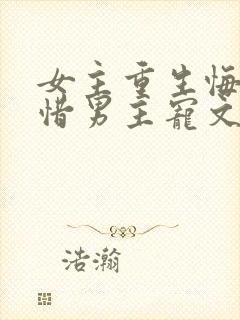 女主重生悔
惜男主寵文
浩瀚